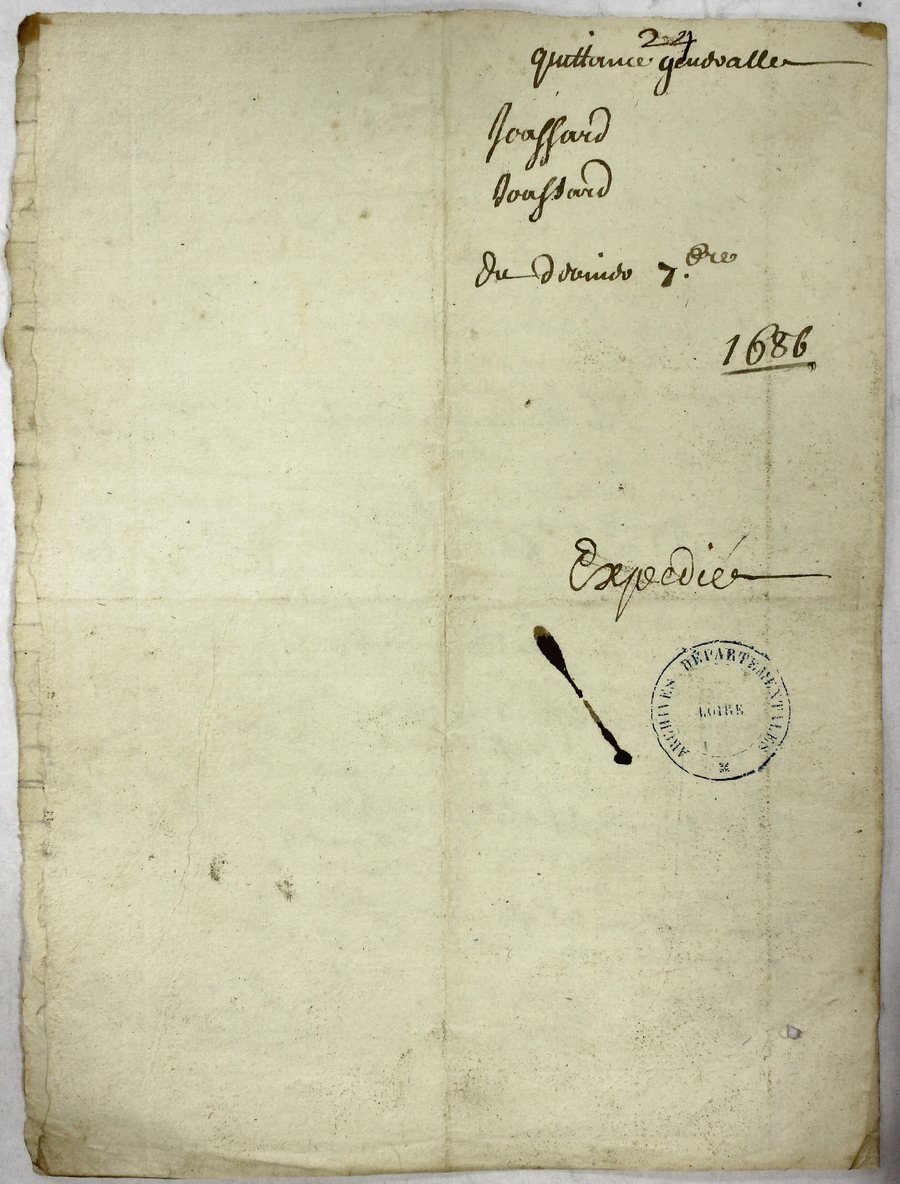 24
quittance generalle
Joassard
Joassard
du dernier 7.bre
1686
Expedié
ARCHIVES DÉPARTEMENTALES
LOIRE